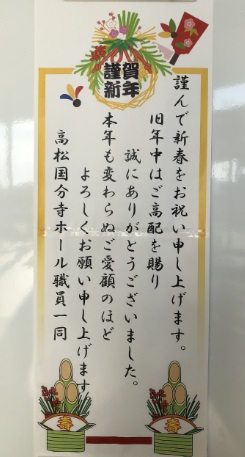 謹賀
新年
謹んで新春をお祝い申し上げます。
旧年中はご高配を賜り
誠にありがとうございました。
本年も変わらぬご愛顧のほど
よろしくお願い申し上げます
高松国分寺ホール職員一同
春
春